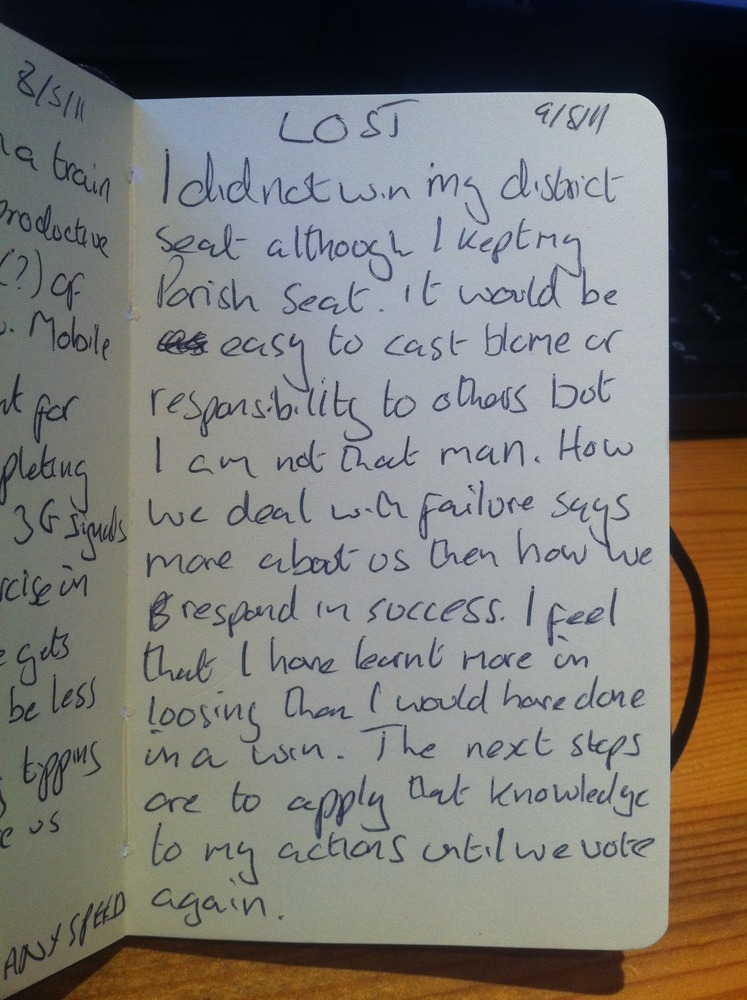 8/5/11
a train
productive
(?) of
. Mobile
for
pleting
3G signals
rcise in
gets
be less
tipping
us
ANY SPEED
LOST 9/5/11
I did not win my district
seat although I kept my
Parish Seat. It would be
easy to cast blame or
responsibility to others but
I am not that man. How
we deal with failure says
more about us then how we
respond in success. I feel
that I have learnt more in
loosing than I would have done
in a win. The next steps
are to apply that knowledge
to my actions until we vote
again.